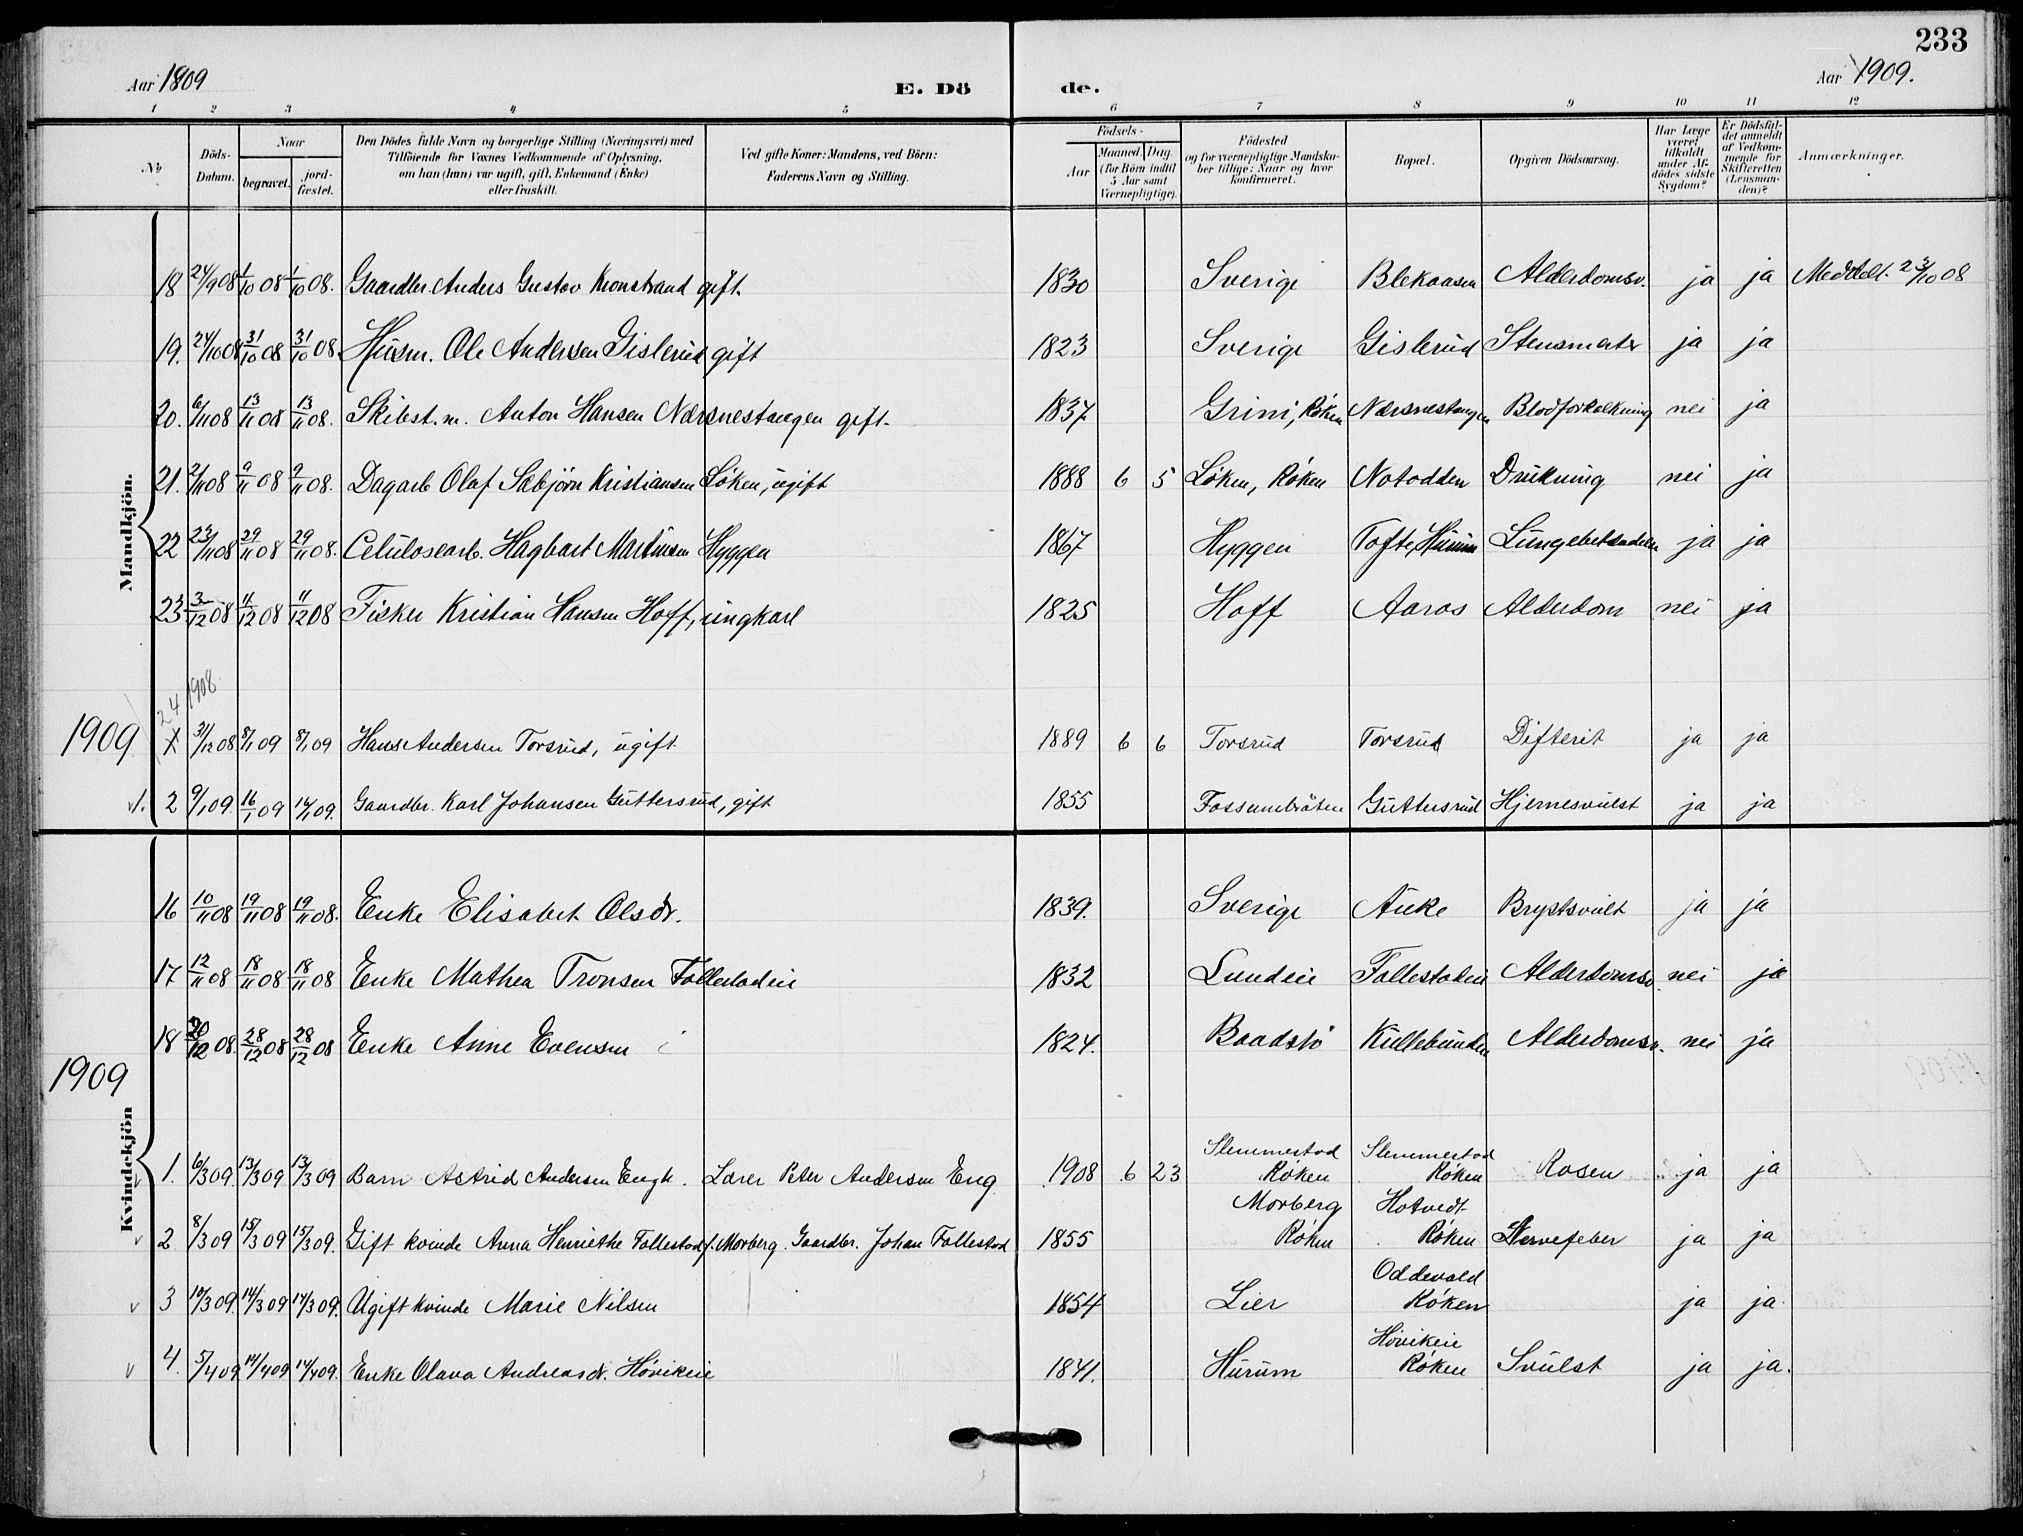 233
Aar 1809 E. Dö de. Aar 1909.
1 2 3 4 5 6 7 8 9 10 11 12
No Döds-Datum. Naar begravet. jord-fæstet. Den Dödes fulde Navn og borgerlige Stilling (Næringsvei) med Tilföiende for Voxnes Vedkommende af Oplysning, om han (hun) var ugift, gift, Enkemand (Enke) eller fraskilt. Ved gifte Koner: Mandens, ved Börn: Faderens Navn og Stilling. Födsels- Aar Maaned. Dag. (for Börn indtil 5 Aar samt Værnepligtige). Födested og for værnepligtige Mandskaber tillige: Naar og hvor konfirmeret. Bopæl. Opgiven Dödsaarsag. Har Læge været tilkaldt under Afdödes sidste Sygdom? Er Dödsfaldet anmeldt af Vedkommende for Skifteretten (Lensmanden)? Anmærkninger.
Mandkjön.
18 24/9 08 1/10 08 1/10 08. Gaardbr. Anders Gustav Kronstrand gift. 1830 Sverige Blekaasen Alderdomsv. ja ja Meddelt. 23/10 08
19. 24/10 08 31/10 08 31/10 08. Husm. Ole Andersen Gislerud gift 1823 Sverige Gislerud Stensmerter ja ja
20. 6/11 08 13/11 08 13/11 08. Skibst.m. Anton Hansen Nærsnestangen gift. 1837 Grini, Røken Nærsnestangen Blodforkalkning nei ja
21. 2/11 08 9/11 08 9/11 08. Dagarb Olaf Sæbjørn Kristiansen Løken, ugift 1888 6 5 Løken, Røken Notodden Drukning nei ja
22 23/11 08 29/11 08 29/11 08. Celulosearb. Hagbart Martinsen Hyggen 1867 Hyggen Tofte, Hurum Lungebetændelse ja ja
23 3/12 08 11/12 08 11/12 08 Fisker Kristian Hansen Hoff, ungkarl 1825 Hoff Aaros Alderdom nei ja
24 1908
1909 1 31/12 08 8/1 09 8/1 09 Hans Andersen Torsrud, ugift. 1889 6 6 Torsrud Torsrud Difterit ja ja
v 1. 2 9/1 09. 16/1 09 16/1 09. Gaardbr. Karl Johansen Guttersrud, gift 1855 Fossumbråten Guttersrud Hjernesvulst ja ja
Kvindekjön
16 10/11 08 19/11 08 19/11 08. Enke Elisabet Olsdr. 1839. Sverige Auke Brystsvulst ja ja
17 12/11 08 18/11 08 18/11 08 Enke Mathea Tronsen Follestadeie 1832 Lundeie Follestadeie Alderdomsv. nei ja
18 20/12 08. 28/12 08 28/12 08 Enke Anne Evensen 1824. Baadstø Kullebunden Alderdomsv. nei ja
1909
Slemmestad Slemmestad
v 1. 6/3 09 13/3 09 13/3 09 Barn Astrid Andersen Engh. Lærer Peter Andersen Eng 1908 6 23 Røken Røken Rosen ja ja
Morberg Hotvedt
v 2 8/3 09 15/3 09 15/3 09. Gift kvinde Anna Henriethe Follestad f. Morberg. Gaardbr. Johan Follestad 1855 Røken Røken Nervefeber ja ja
Oddevald
v 3 10/3 09. 14/3 09 14/3 09. Ugift kvinde Marie Nilsen 1854 Lier Røken ja ja.
Høvikeie
v 4. 5/4 09 14/4 09 14/4 09. Enke Olava Andreasdr. Høvikeie 1841. Hurum Røken Svulst ja ja.